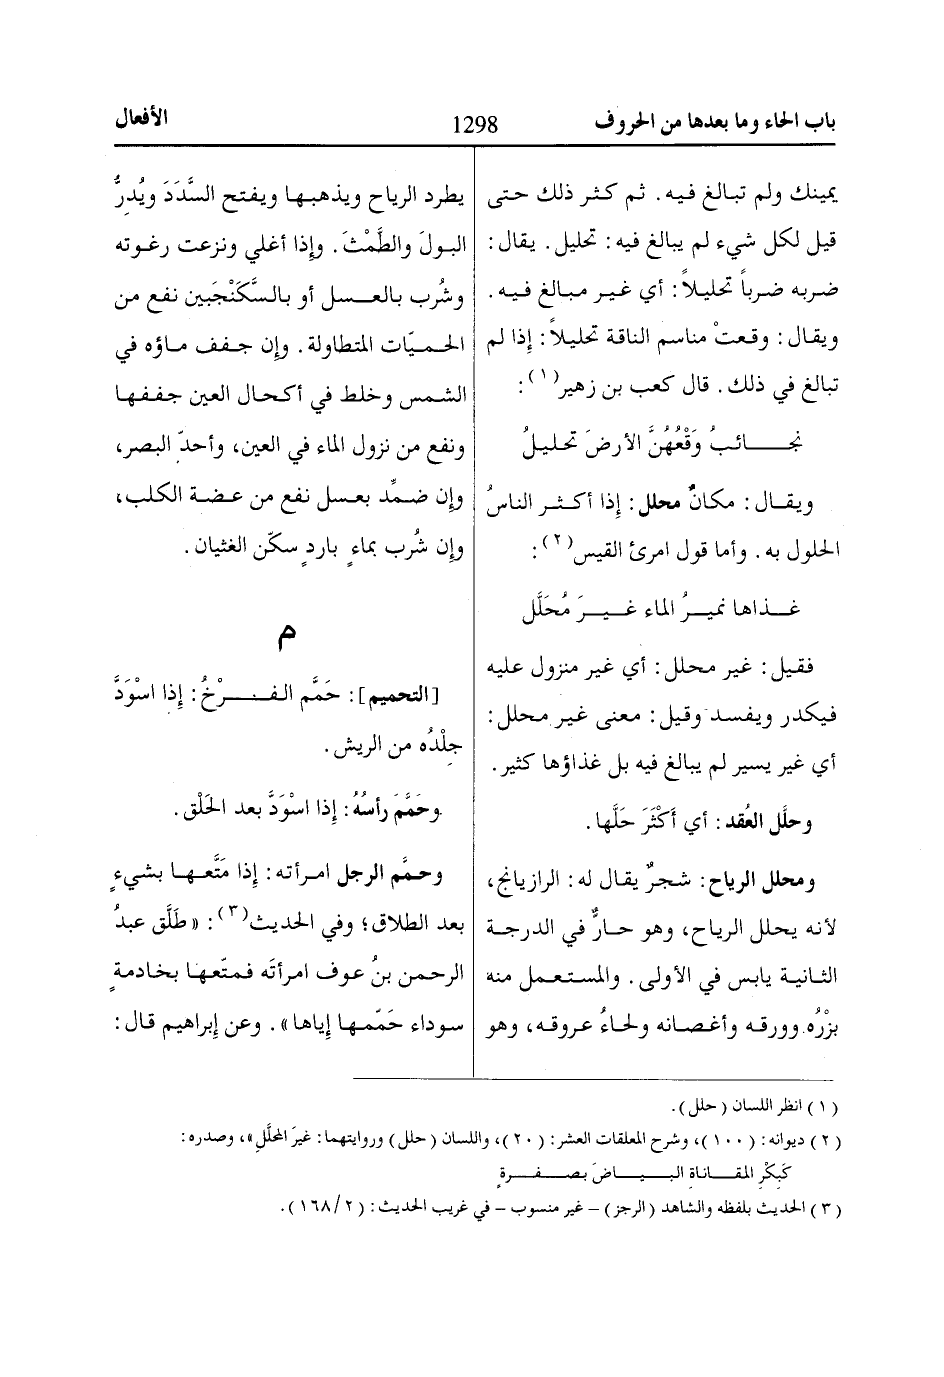 باب الحاء وما بعدها من الحروف 1298 الأفعال
يمينك ولم تبالغ فيه. ثم كثر ذلك حتى
قيل لكل شيء لم يبالغ فيه: تحليل. يقال:
ضربه ضرباً تحليلاً: أي غير مبالغ فيه.
ويقال: وقعتْ مناسم الناقة تحليلاً: إذا لم
تبالغ في ذلك. قال كعب بن زهير(١):
نجـــائبُ وَقْعُهُنَّ الأرضَ تحليلُ
ويقال: مكانٌ محلل: إذا أكثر الناسُ
الحلول به. وأما قول امرئ القيس(٢):
غـذاها نميـرُ الماء غيـرَ مُحَلَّل
فقيل: غير محلل: أي غير منزول عليه
فيكدر ويفسد وقيل: معنى غير محلل:
أي غير يسير لم يبالغ فيه بل غذاؤها كثير.
وحلَّل العُقد: أي أَكْثَرَ حَلَّها.
ومحلل الرياح: شجرٌ يقال له: الرازيانج،
لأنه يحلل الرياح، وهو حارٌّ في الدرجة
الثانية يابس في الأولى. والمستعمل منه
بزْرُه وورقه وأغصانه ولحاءُ عروقه، وهو
يطرد الرياح ويذهبها ويفتح السَّدَدَ ويُدِرُّ
البولَ والطَّمْثَ. وإذا أغلي ونزعت رغوته
وشُرب بالعسل أو بالسَّكَنْجَبين نفع من
الحميّات المتطاولة. وإن جفف ماؤه في
الشمس وخلط في أكحال العين جففها
ونفع من نزول الماء في العين، وأحدّ البصر،
وإن ضمِّد بعسل نفع من عضة الكلب،
وإن شُرب بماءٍ باردٍ سكّن الغثيان.
م
[التحميم]: حَمَّم الفـرْخُ: إذا اسْوَدَّ
جِلْدُه من الريش.
وحَمَّمَ رأسُهُ: إذا اسْوَدَّ بعد الحَلْق.
وحمَّم الرجل امرأته: إذا مَتَّعها بشيءٍ
بعد الطلاق؛ وفي الحديث(٣): «طَلَّق عبدُ
الرحمن بنُ عوف امرأتَه فمتّعها بخادمةٍ
سوداء حَمّمها إياها». وعن إبراهيم قال:
(١) انظر اللسان (حلل).
(٢) ديوانه: (١٠٠)، وشرح المعلقات العشر: (٢٠)، واللسان (حلل) وروايتهما: غيرَ المحلَّلِ»، وصدره:
كَبِكْرِ المقـاناةِ البـيـاضَ بصـفـرةٍ
(٣) الحديث بلفظه والشاهد (الرجز) – غير منسوب – في غريب الحديث: (١٦٨/٢).